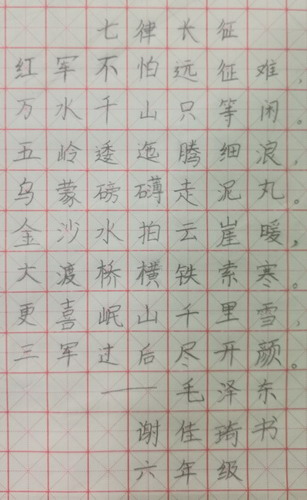 七律长征
红军不怕远征难，
万水千山只等闲。
五岭逶迤腾细浪，
乌蒙磅礴走泥丸。
金沙水拍云崖暖，
大渡桥横铁索寒。
更喜岷山千里雪，
三军过后尽开颜。
——毛泽东
谢佳琦书
六年级